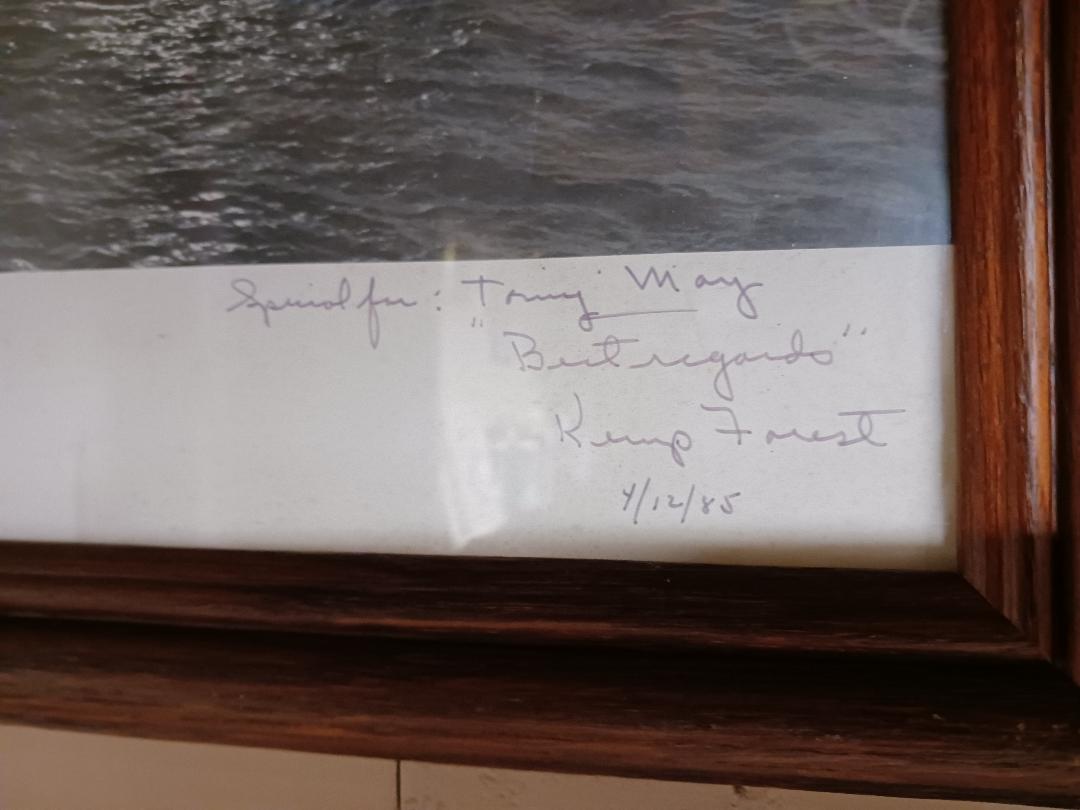 Special for: Tony May
"Best regards"
Kemp Forest
4/12/85